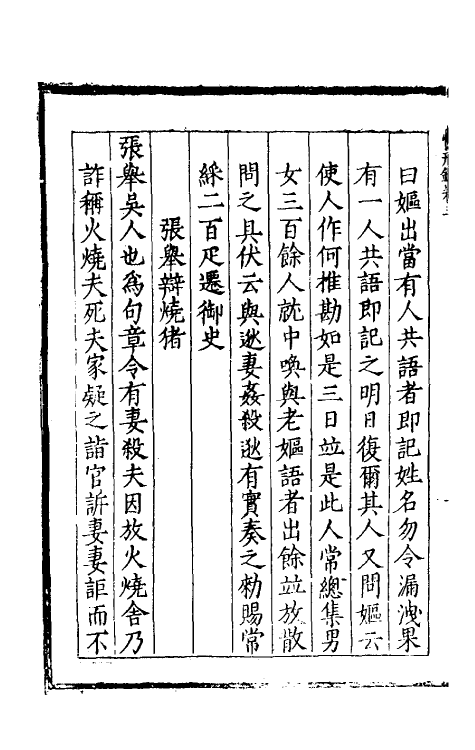 曰嫗出當有人共語者即記姓名勿令漏洩果
有一人共語即記之明日復爾其人又問嫗云
使人作何推勘如是三日竝是此人常總集男
女三百餘人就中喚與老嫗語者出餘竝放散
問之具伏云與逖妻姦殺逖有實奏之勑賜常
綵二百疋遷御史
張舉辯燒猪
張舉吳人也爲句章令有妻殺夫因放火燒舍乃
詐稱火燒夫死夫家疑之詣官訴妻妻詎而不